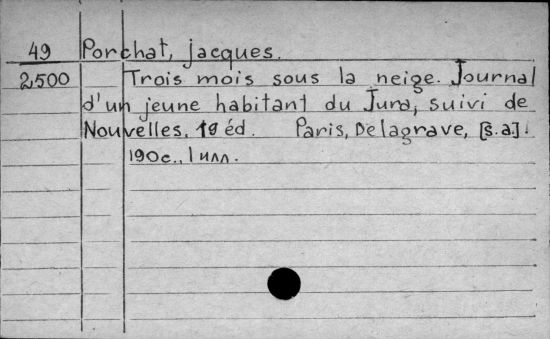 49 Porchat, jacques.
2500 Trois mois sous la neige. Journal
d'un jeune habitant du Jura, suivi de
Nouvelles. 19 éd. Paris, Delagrave, [s.a.].
190c., 1 илл.